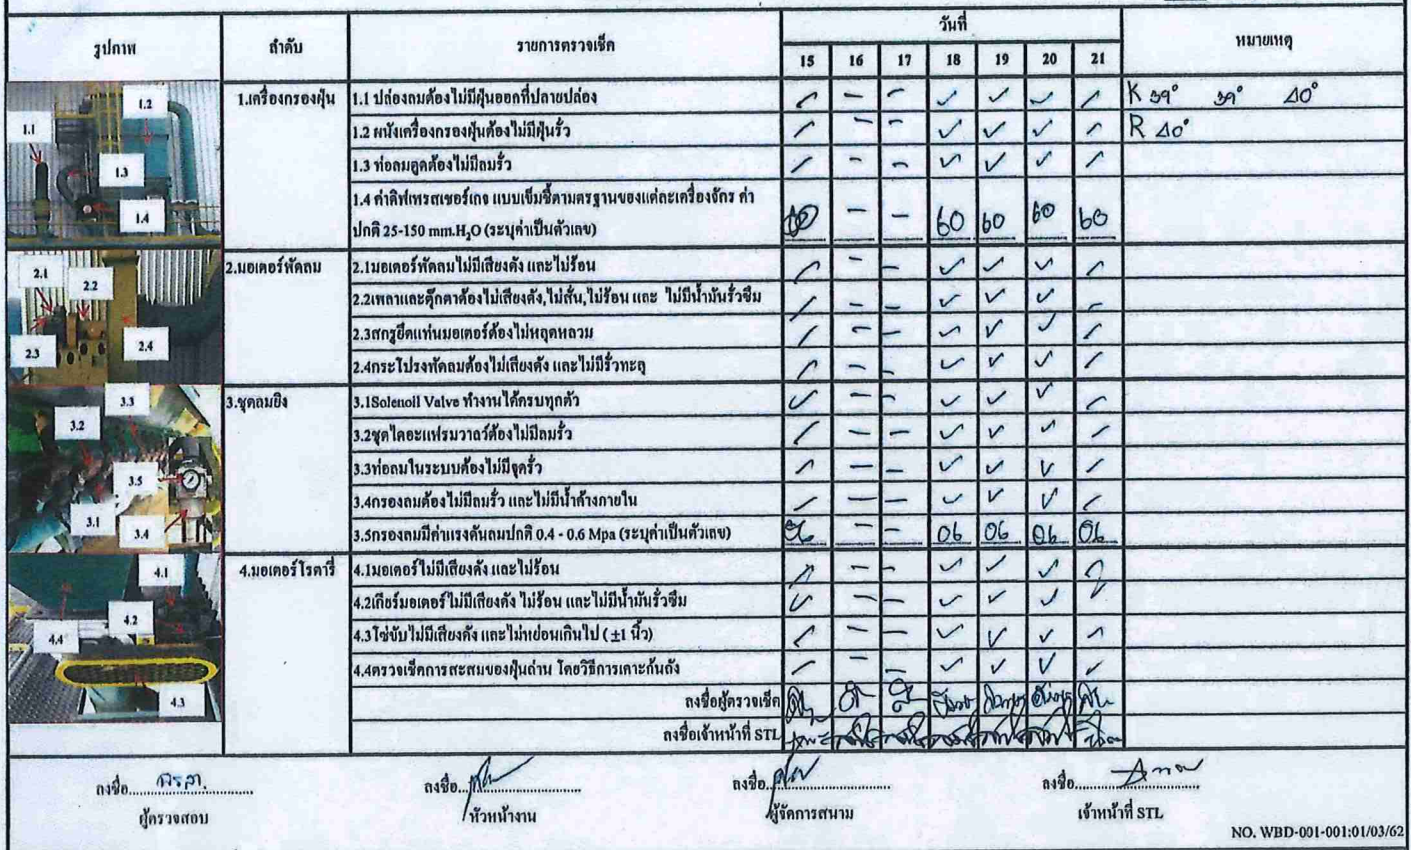 รูปภาพ ลำดับ รายการตรวจเช็ค วันที่ หมายเหตุ
15 16 17 18 19 20 21
1.เครื่องกรองฝุ่น 1.1 ปล่องลมต้องไม่มีฝุ่นออกที่ปลายปล่อง ✓ - - ✓ ✓ ✓ ✓ K 39° 39° 40°
1.2 ผนังเครื่องกรองฝุ่นต้องไม่มีฝุ่นรั่ว ✓ - - ✓ ✓ ✓ ✓ R 40°
1.3 ท่อลมดูดต้องไม่มีลมรั่ว ✓ - - ✓ ✓ ✓ ✓
1.4 ค่าดิฟเฟรสเชอร์เกจ แบบเข็มชี้ตามตรฐานของแต่ละเครื่องจักร ค่า
ปกติ 25-150 mm.H₂O (ระบุค่าเป็นตัวเลข) - - 60 60 60 60
1.1 1.2 1.3 1.4
2.มอเตอร์พัดลม 2.1มอเตอร์พัดลมไม่มีเสียงดัง และไม่ร้อน ✓ - - ✓ ✓ ✓ ✓
2.2เพลาและตุ๊กตาต้องไม่เสียงดัง,ไม่สั่น,ไม่ร้อน และ ไม่มีน้ำมันรั่วซึม ✓ - - ✓ ✓ ✓ ✓
2.3สกรูยึดแท่นมอเตอร์ต้องไม่หลุดหลวม ✓ - - ✓ ✓ ✓ ✓
2.4กระโปรงพัดลมต้องไม่เสียงดัง และไม่มีรั่วทะลุ ✓ - - ✓ ✓ ✓ ✓
2.1 2.2 2.3 2.4
3.ชุดลมยิง 3.1Solenoil Valve ทำงานได้ครบทุกตัว ✓ - - ✓ ✓ ✓ ✓
3.2ชุดไดอะแฟรมวาลว์ต้องไม่มีลมรั่ว ✓ - - ✓ ✓ ✓ ✓
3.3ท่อลมในระบบต้องไม่มีจุดรั่ว ✓ - - ✓ ✓ ✓ ✓
3.4กรองลมต้องไม่มีลมรั่ว และไม่มีน้ำค้างภายใน ✓ - - ✓ ✓ ✓ ✓
3.5กรองลมมีค่าแรงดันลมปกติ 0.4 - 0.6 Mpa (ระบุค่าเป็นตัวเลข) - - 06 06 06 06
3.3 3.2 3.5 3.1 3.4
4.มอเตอร์โรตารี่ 4.1มอเตอร์ไม่มีเสียงดัง และไม่ร้อน ✓ - - ✓ ✓ ✓ ✓
4.2เกียร์มอเตอร์ไม่มีเสียงดัง ไม่ร้อน และไม่มีน้ำมันรั่วซึม ✓ - - ✓ ✓ ✓ ✓
4.3โซ่ขับไม่มีเสียงดัง และไม่หย่อนเกินไป ( ±1 นิ้ว) ✓ - - ✓ ✓ ✓ ✓
4.4ตรวจเช็คการสะสมของฝุ่นถ่าน โดยวิธีการเคาะก้นถัง ✓ - - ✓ ✓ ✓ ✓
4.1 4.2 4.4 4.3
ลงชื่อผู้ตรวจเช็ค
ลงชื่อเจ้าหน้าที่ STL
ลงชื่อ ลงชื่อ ลงชื่อ ลงชื่อ
ผู้ตรวจสอบ หัวหน้างาน ผู้จัดการสนาม เจ้าหน้าที่ STL
NO. WBD-001-001:01/03/62